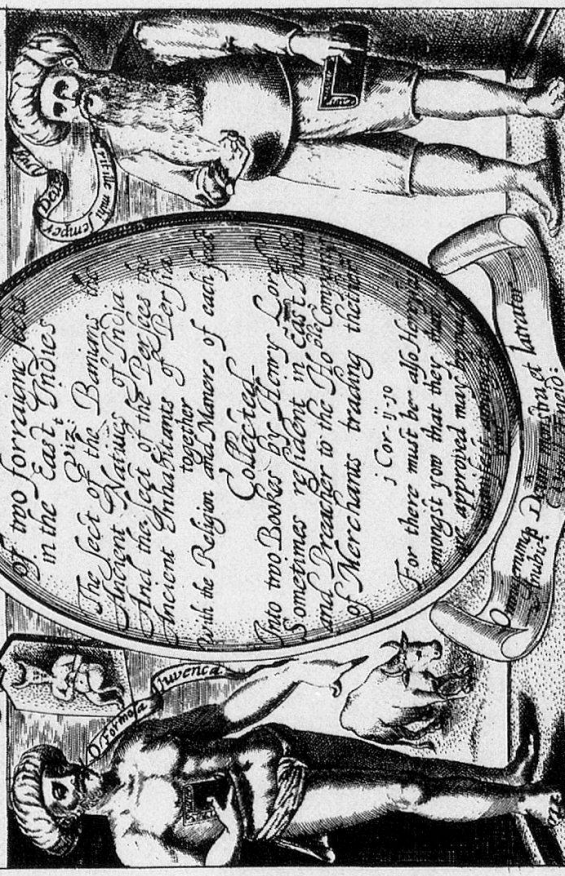 of two forraigne sects
in the East Indies
Vizt:
The sect of the Banians the
Ancient Natives of India
And the sect of the Persees the
Ancient Inhabitants of Persia
together
With the Religion and Maners of each sect
Collected
Into two Bookes by Henry Lord
Sometimes resident in East India
and Preacher to the Hoble Company
of Merchants trading thether
j Cor · ij ·
For there must be also Heresies
amongst you that they that
approved may be made
manifest
mihi semper
O Formosa Juvenca
Omnigenumq Deum et latrator
Anubis.